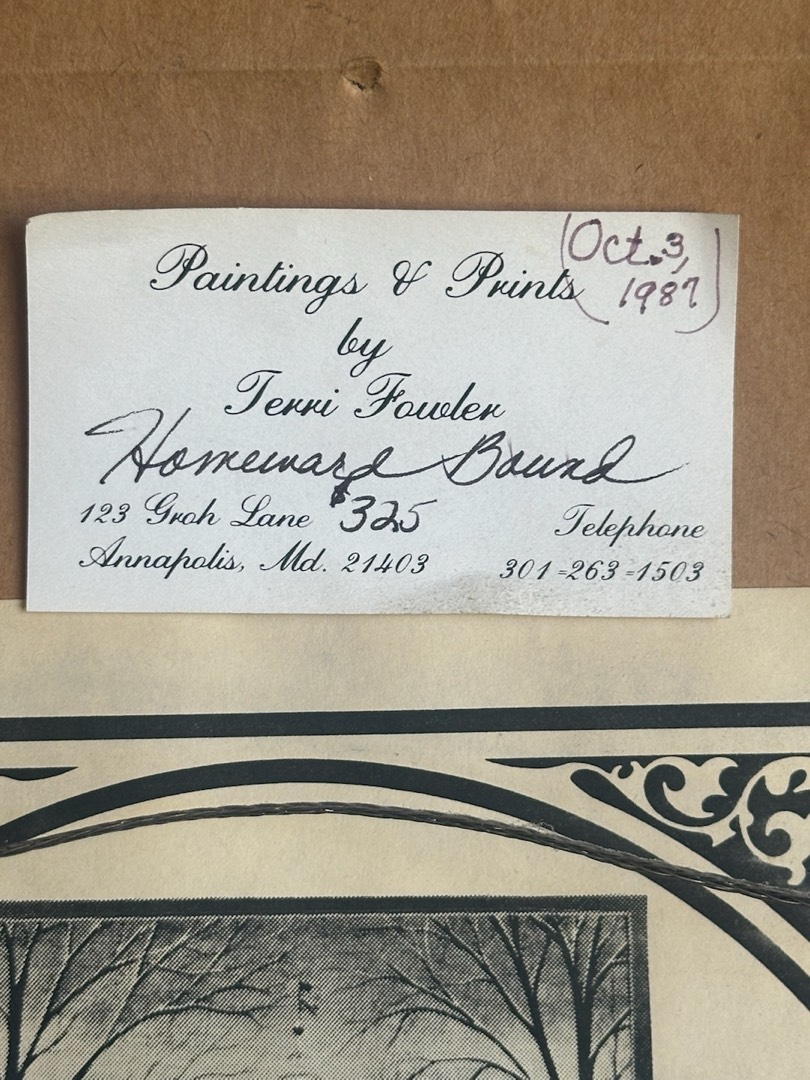 (Oct. 3,
1987)
Paintings & Prints
by
Terri Fowler
Homeward Bound
$325
123 Groh Lane
Annapolis, Md. 21403
Telephone
301-263-1503